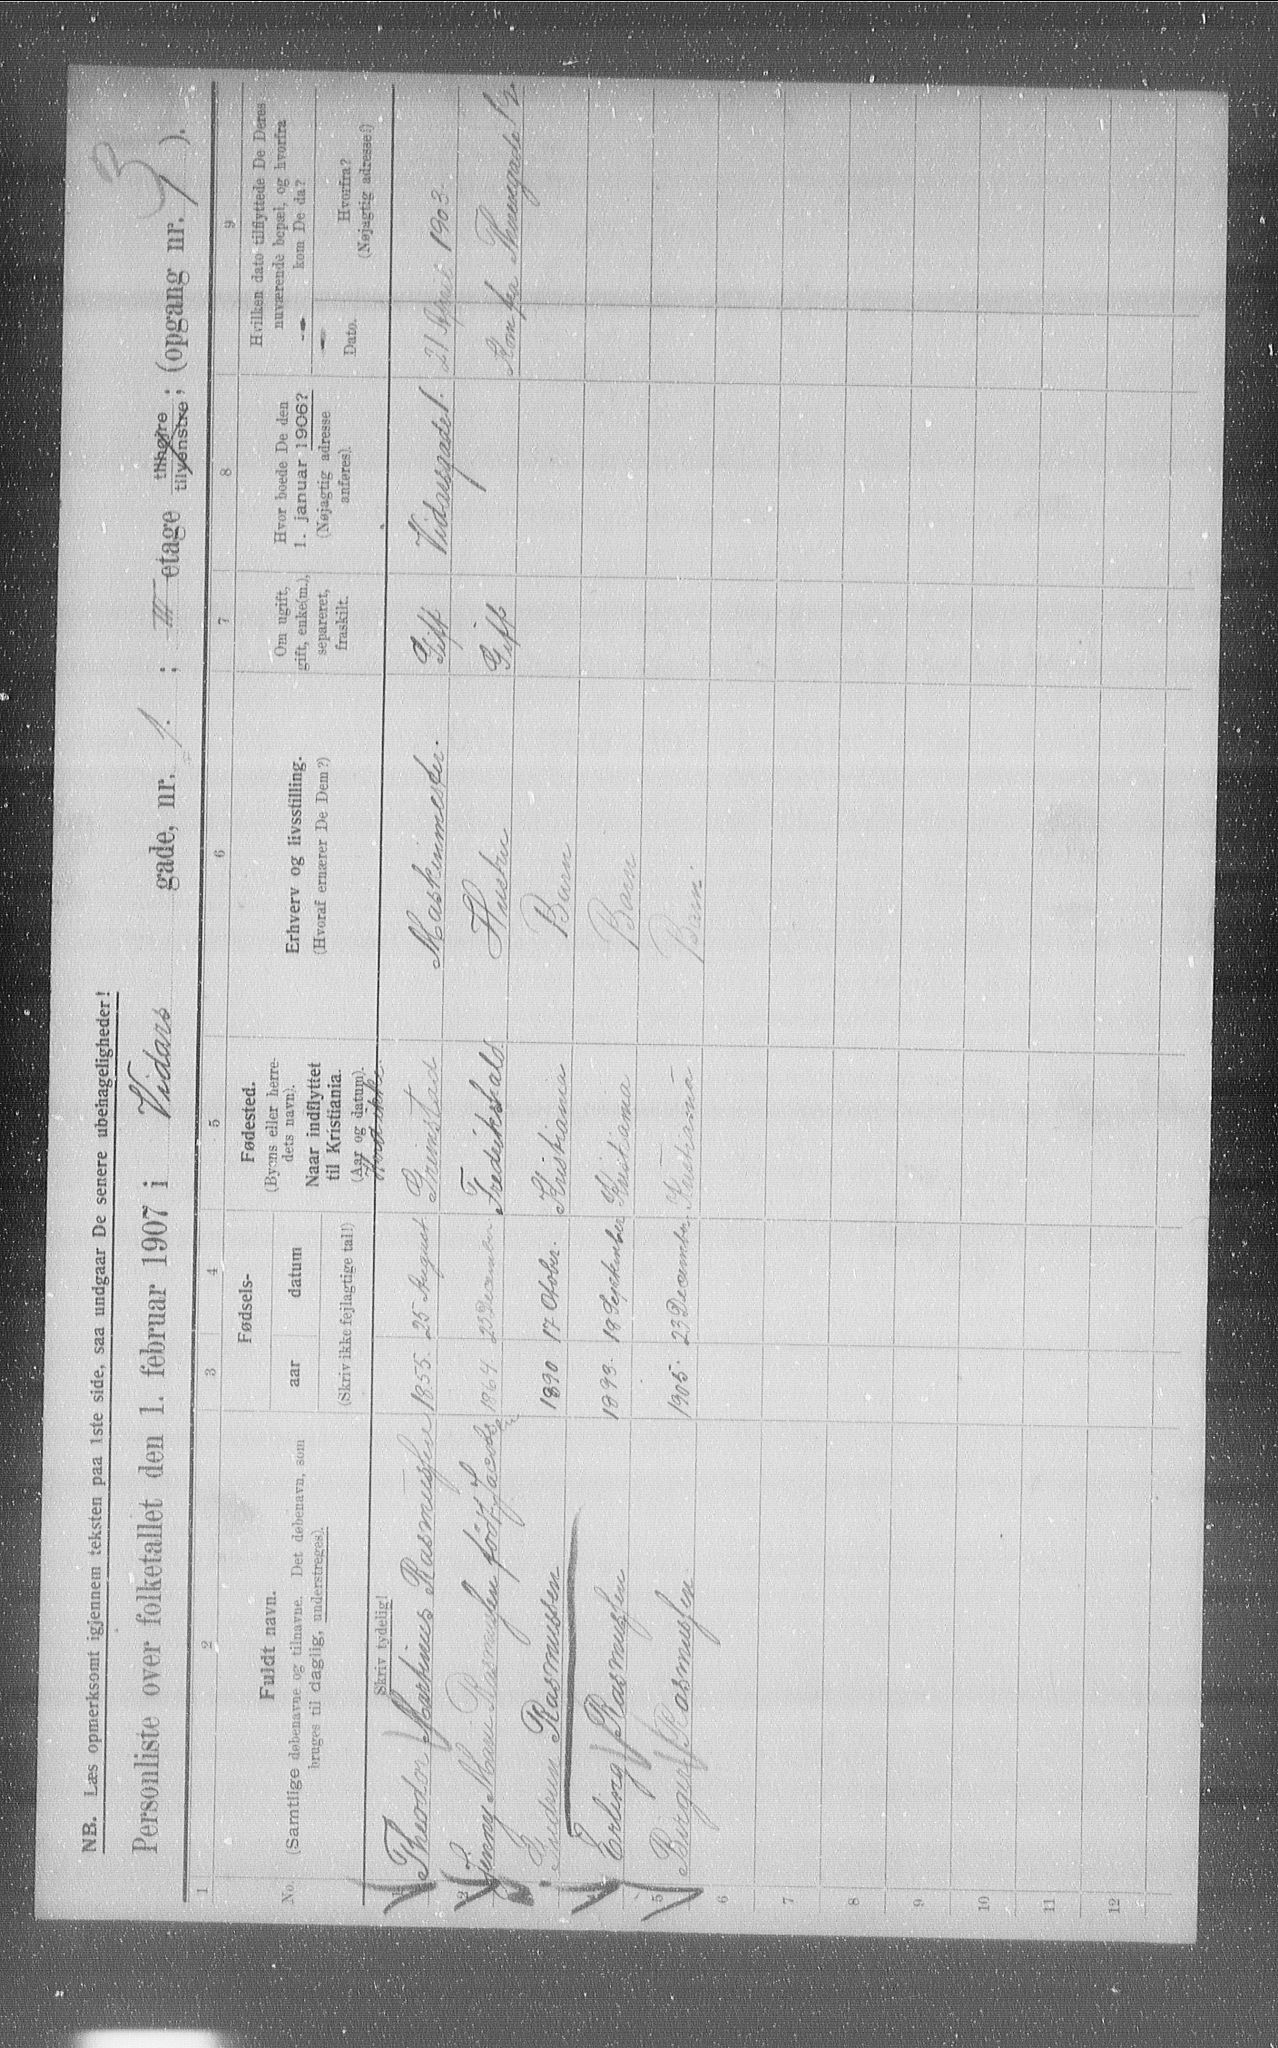 3
NB. Læs opmerksomt igjennem teksten paa 1ste side, saa undgaar De senere ubehageligheder!
Personliste over folketallet den 1. februar 1907 i Vidars gade, nr. 1. ; III etage tilhøire tilvenstre ; (opgang nr. ).
1 2 3 4 5 6 7 8 9
No. Fuldt navn. (Samtlige døbenavne og tilnavne. Det døbenavn, som bruges til daglig, understreges).
Fødsels- aar datum (Skriv ikke fejlagtige tal!)
Fødested. (Byens eller herredets navn). Naar indflyttet til Kristiania. (Aar og datum).
Erhverv og livsstilling. (Hvoraf ernærer De Dem?)
Om ugift, gift, enke(m.), separeret, fraskilt.
Hvor boede De den 1. januar 1906? (Nøjagtig adresse anføres).
Hvilken dato tilflyttede De Deres nuværende bopæl, og hvorfra kom De da?
Dato. Hvorfra? (Nøjagtig adresse!)
Skriv tydelig!
1 Theodor Martinius Rasmussen 1855. 25 August Grimstad Maskinmester. Gift Vidarsgade 1. 21 April 1903.
2 Jenny Marie Rasmussen född Jacobs 1864. 23 December Fredrikshald Hustru Gift " Kom fra
3 Rasmussen 1890 17 Otober. Kristiania Barn
4 Erling Rasmussen 1893. 18 September Kristiania Barn
5 Birger Rasmussen 1905. 23 December Kristiania Barn.
6
7
8
9
10
11
12